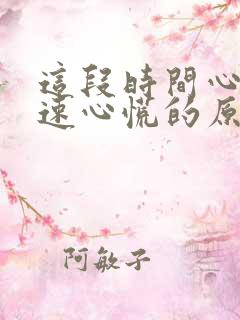 這段時間心
速心慌的原
阿敏子